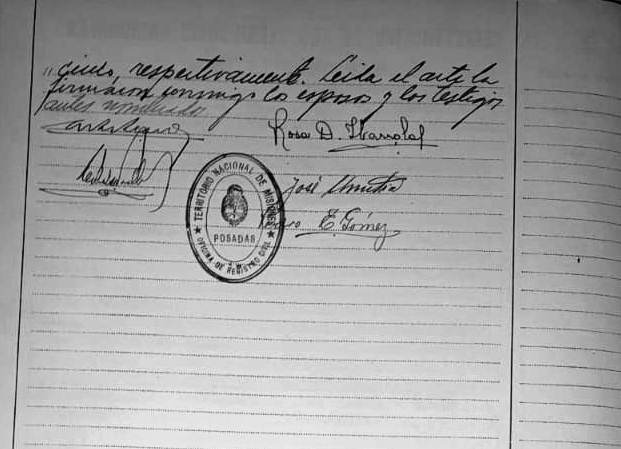 cinco, respectivamente. Leida el acta la
firmaron conmigo los esposos y los testigos
antes nombrados
Rosa D. Ibarrola
José
E. Gómez
TERRITORIO NACIONAL DE MISIONES
POSADAS
OFICINA DE REGISTRO CIVIL